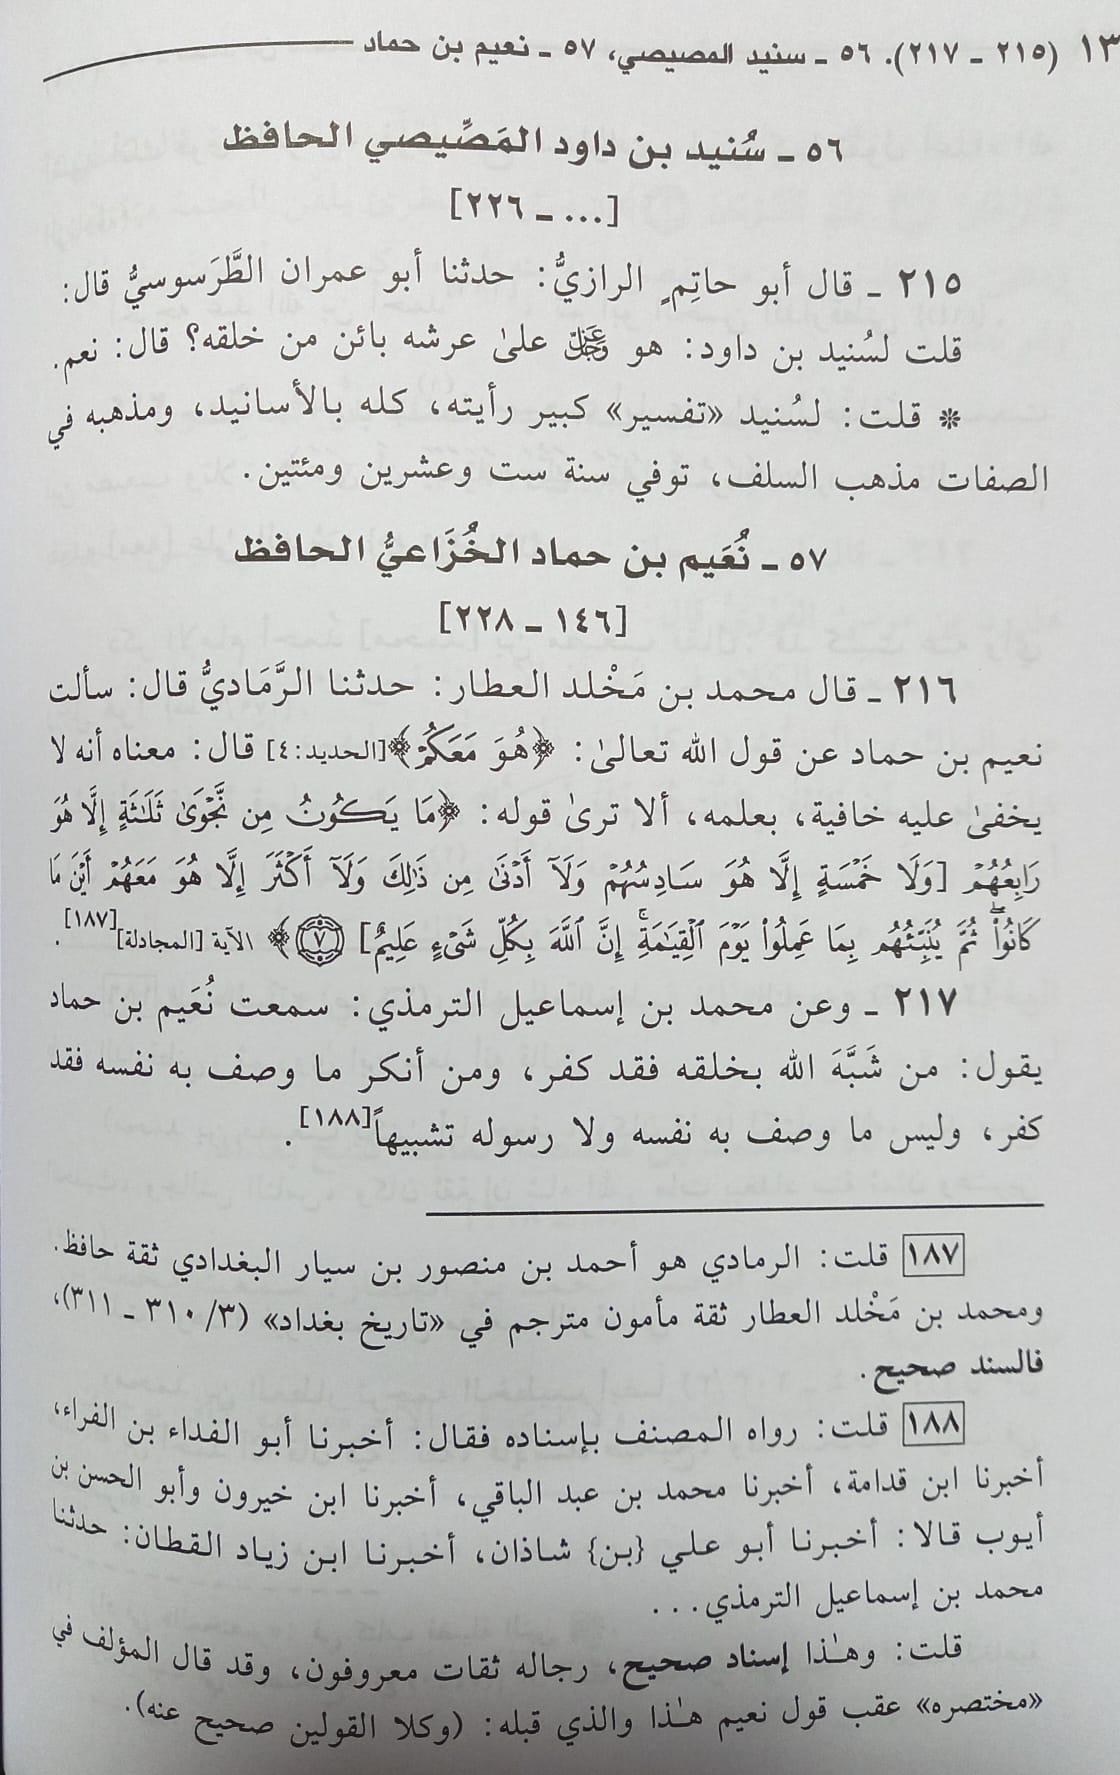 ١٣ (٢١٥ ـ ٢١٧). ٥٦ ـ سنيد المصيصي، ٥٧ ـ نعيم بن حماد
٥٦ ـ سُنيد بن داود المَصِّيصي الحافظ
[... ـ ٢٢٦]
٢١٥ ـ قال أبو حاتِمٍ الرازيُّ: حدثنا أبو عمران الطَّرَسوسيُّ قال:
قلت لسُنيد بن داود: هو عَزَّ وَجَلَّ علىٰ عرشه بائن من خلقه؟ قال: نعم.
* قلت: لسُنيد «تفسير» كبير رأيته، كله بالأسانيد، ومذهبه في
الصفات مذهب السلف، توفي سنة ست وعشرين ومئتين.
٥٧ ـ نُعَيم بن حماد الخُزَاعيُّ الحافظ
[١٤٦ ـ ٢٢٨]
٢١٦ ـ قال محمد بن مَخْلد العطار: حدثنا الرَّمَاديُّ قال: سألت
نعيم بن حماد عن قول الله تعالىٰ: ﴿هُوَ مَعَكُمْ﴾[الحديد:٤] قال: معناه أنه لا
يخفىٰ عليه خافية، بعلمه، ألا ترىٰ قوله: ﴿مَا يَكُونُ مِن نَّجْوَىٰ ثَلَٰثَةٍ إِلَّا هُوَ
رَابِعُهُمْ [وَلَا خَمْسَةٍ إِلَّا هُوَ سَادِسُهُمْ وَلَآ أَدْنَىٰ مِن ذَٰلِكَ وَلَآ أَكْثَرَ إِلَّا هُوَ مَعَهُمْ أَيْنَ مَا
كَانُوا۟ ۖ ثُمَّ يُنَبِّئُهُم بِمَا عَمِلُوا۟ يَوْمَ ٱلْقِيَٰمَةِ ۚ إِنَّ ٱللَّهَ بِكُلِّ شَىْءٍ عَلِيمٌ] ٧﴾ الآية [المجادلة][١٨٧].
٢١٧ ـ وعن محمد بن إسماعيل الترمذي: سمعت نُعَيم بن حماد
يقول: من شَبَّهَ الله بخلقه فقد كفر، ومن أنكر ما وصف به نفسه فقد
كفر، وليس ما وصف به نفسه ولا رسوله تشبيهاً[١٨٨].
١٨٧ قلت: الرمادي هو أحمد بن منصور بن سيار البغدادي ثقة حافظ.
ومحمد بن مَخْلد العطار ثقة مأمون مترجم في «تاريخ بغداد» (٣/ ٣١٠ ـ ٣١١)،
فالسند صحيح.
١٨٨ قلت: رواه المصنف بإسناده فقال: أخبرنا أبو الفداء بن الفراء،
أخبرنا ابن قدامة، أخبرنا محمد بن عبد الباقي، أخبرنا ابن خيرون وأبو الحسن بن
أيوب قالا: أخبرنا أبو علي {بن} شاذان، أخبرنا ابن زياد القطان: حدثنا
محمد بن إسماعيل الترمذي...
قلت: وهـٰذا إسناد صحيح، رجاله ثقات معروفون، وقد قال المؤلف في
«مختصره» عقب قول نعيم هـٰذا والذي قبله: (وكلا القولين صحيح عنه).